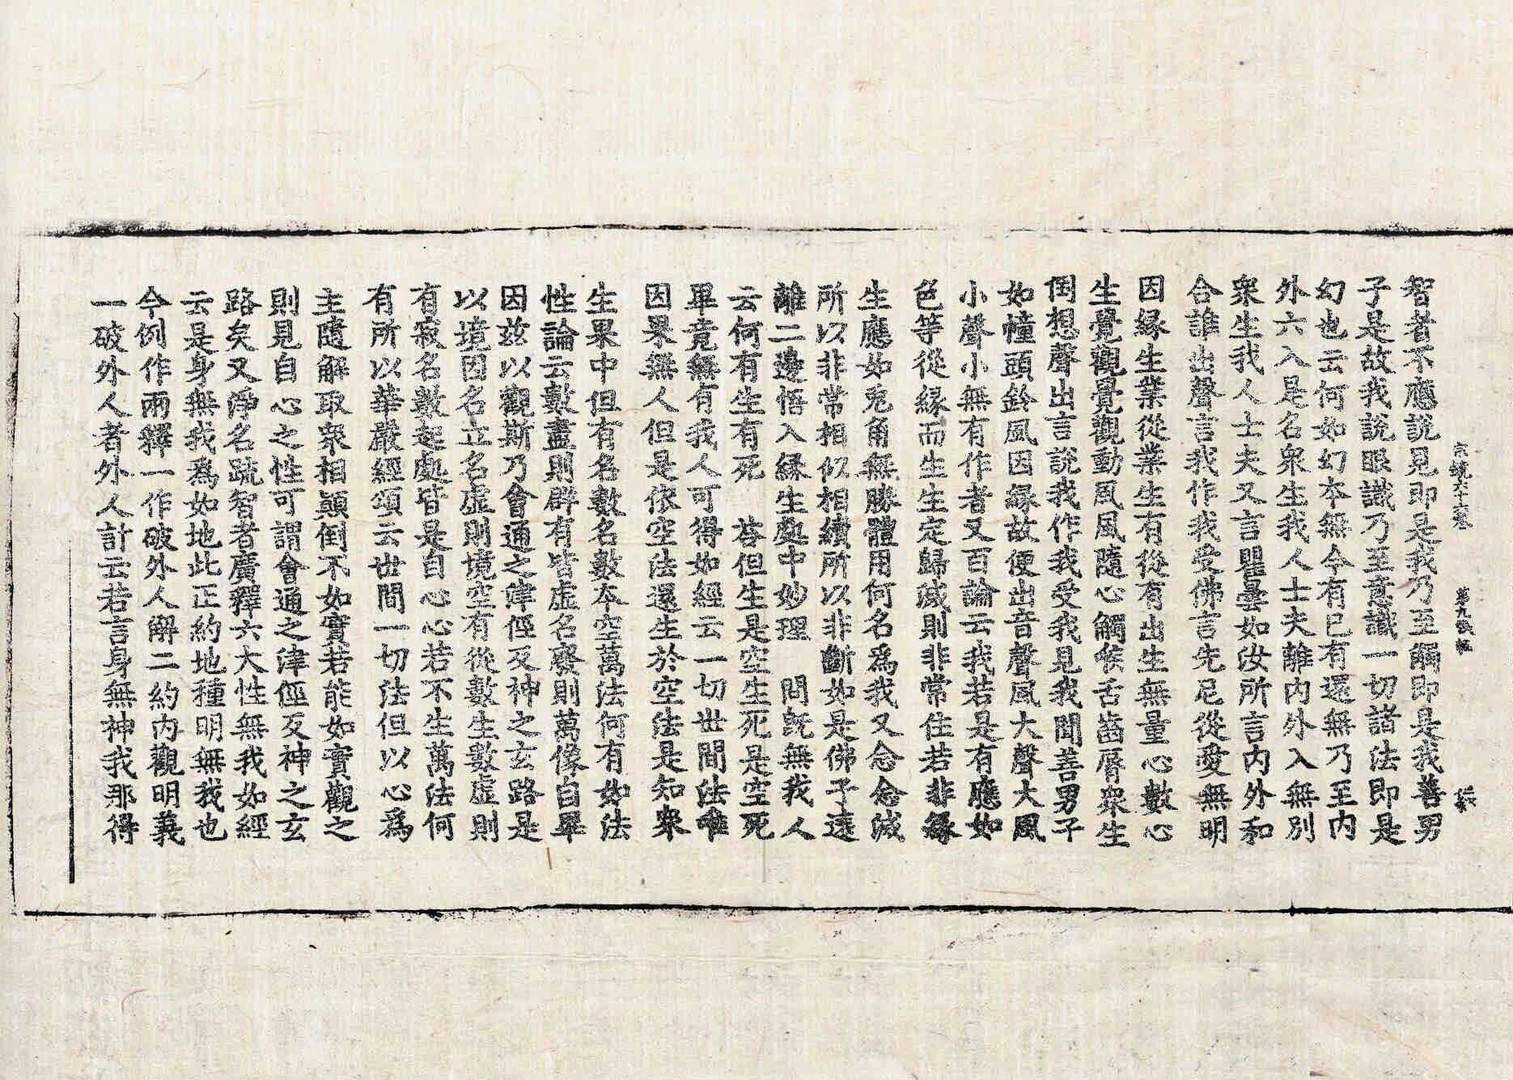 智者不應說見即是我乃至觸即是我善男
子是故我說眼識乃至意識一切諸法即是
幻也云何如幻本無今有已有還無乃至内
外六入是名衆生我人士夫離内外入無別
衆生我人士夫又言瞿曇如汝所言内外和
合誰出聲言我作我受佛言先尼從愛無明
因緣生業從業生有從有出生無量心數心
生覺觀覺觀動風風隨心觸喉舌齒脣衆生
倒想聲出言說我作我受我見我聞善男子
如幢頭鈴風因緣故便出音聲風大聲大風
小聲小無有作者又百論云我若是有應如
色等從緣而生生定歸滅則非常住若非緣
生應如兎角無勝體用何名爲我又念念滅
所以非常相似相續所以非斷如是佛子遠
離二邊悟入緣生處中妙理　問旣無我人
云何有生有死　荅但生是空生死是空死
畢竟無有我人可得如經云一切世間法唯
因果無人但是依空法還生於空法是知衆
生果中但有名數名數本空萬法何有如法
性論云數盡則群有皆虛名廢則萬像自畢
因玆以觀斯乃會通之津徑反神之玄路是
以境因名立名虛則境空有從數生數虛則
有寂名數起處皆是自心心若不生萬法何
有所以華嚴經頌云世間一切法但以心爲
主隨解取衆相顚倒不如實若能如實觀之
則見自心之性可謂會通之津徑反神之玄
路矣又淨名疏智者廣釋六大性無我如經
云是身無我爲如地此正約地種明無我也
今例作兩釋一作破外人解二約内觀明義
一破外人者外人計云若言身無神我那得
宗鏡六十六卷　第九張